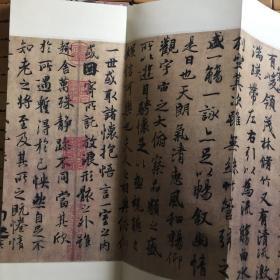 茂林脩竹又有清流
湍暎帶左右引以為流觴曲水
列坐其次雖無絲竹管弦
盛一觴一詠亦足以暢敘幽情
是日也天朗氣清惠風和暢仰
觀宇宙之大俯察品類之盛
所以遊目騁懷足以極視聽
娛信可樂也夫人之相與
一世或取諸懷抱悟言一室之內
或因寄所託放浪形骸之外雖
趣舍萬殊靜躁不同當其欣
於所遇暫得於己怏然自足不
知老之將至及其所之既惓情